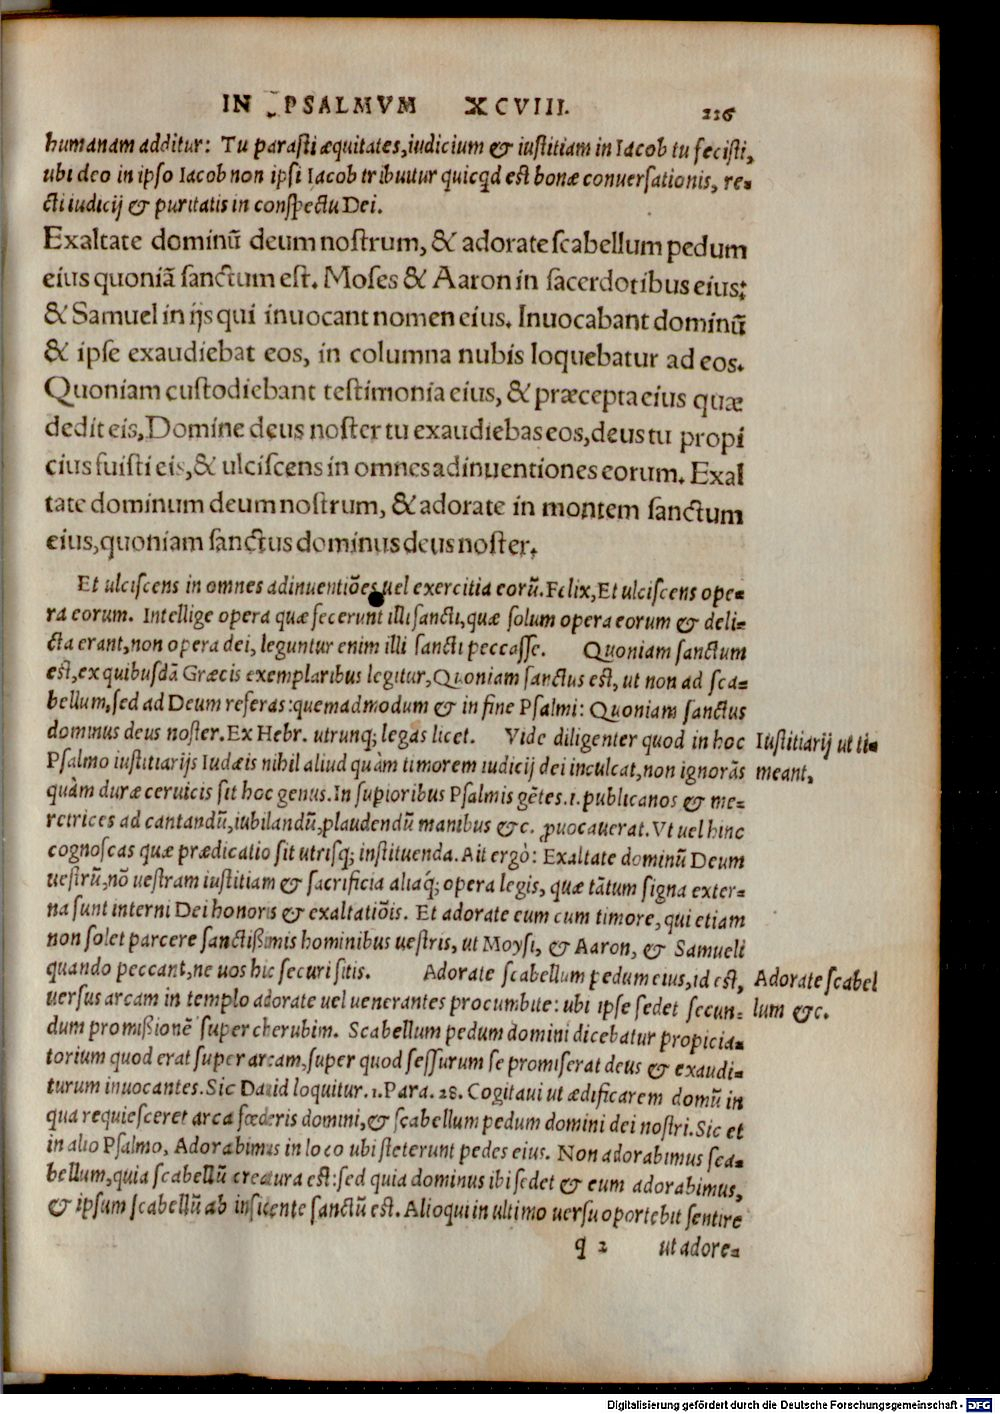 IN PSALMVM XCVIII. 226
humanam additur: Tu parasti æquitates, iudicium & iustitiam in Iacob tu fecisti,
ubi deo in ipso Iacob non ipsi Iacob tribuitur quicqd est bonæ conuersationis, re-
cti iudicij & puritatis in conspectu Dei.
Exaltate dominū deum nostrum, & adorate scabellum pedum
eius quoniā sanctum est. Moses & Aaron in sacerdotibus eius:
& Samuel in ijs qui inuocant nomen eius. Inuocabant dominū
& ipse exaudiebat eos, in columna nubis loquebatur ad eos.
Quoniam custodiebant testimonia eius, & præcepta eius quæ
dedit eis. Domine deus noster tu exaudiebas eos, deus tu propi
cius fuisti eis, & ulciscens in omnes adinuentiones eorum. Exal
tate dominum deum nostrum, & adorate in montem sanctum
eius, quoniam sanctus dominus deus noster.
Et ulciscens in omnes adinuentiōes uel exercitia eorū. Felix, Et ulciscens ope-
ra eorum. Intellige opera quæ fecerunt illi sancti, quæ solum opera eorum & deli-
cta erant, non opera dei, leguntur enim illi sancti peccasse. Quoniam sanctum
est, ex quibusdā Græcis exemplaribus legitur, Quoniam sanctus est, ut non ad sca-
bellum, sed ad Deum referas: quemadmodum & in fine Psalmi: Quoniam sanctus
dominus deus noster. Ex Hebr. utrunq; legas licet. Vide diligenter quod in hoc
Iustitiarij ut ti-
Psalmo iustitiarijs Iudæis nihil aliud quàm timorem iudicij dei inculcat, non ignorās
meant,
quàm duræ ceruicis sit hoc genus. In supioribus Psalmis gētes .i. publicanos & me-
retrices ad cantandū, iubilandū, plaudendū manibus &c. ꝓuocauerat. Vt uel hinc
cognoscas quæ prædicatio sit utrisq; instituenda. Ait ergò: Exaltate dominū Deum
uestrū, nō uestram iustitiam & sacrificia aliaq́; opera legis, quæ tātum signa exter-
na sunt interni Dei honoris & exaltatiōis. Et adorate eum cum timore, qui etiam
non solet parcere sanctißimis hominibus uestris, ut Moysi, & Aaron, & Samueli
quando peccant, ne uos hic securi sitis. Adorate scabellum pedum eius, id est,
Adorate scabel
uersus arcam in templo adorate uel uenerantes procumbite: ubi ipse sedet secun-
lum &c.
dum promißionē super cherubim. Scabellum pedum domini dicebatur propicia-
torium quod erat super arcam, super quod sessurum se promiserat deus & exaudi-
turum inuocantes. Sic Dauid loquitur. 1. Para. 28. Cogitaui ut ædificarem domū in
qua requiesceret arca fœderis domini, & scabellum pedum domini dei nostri. Sic et
in alio Psalmo, Adorabimus in loco ubi steterunt pedes eius. Non adorabimus sca-
bellum, quia scabellū creatura est: sed quia dominus ibi sedet & eum adorabimus,
& ipsum scabellū ab insidente sanctū est. Alioqui in ultimo uersu oportebit sentire
q 2 ut adore-
Digitalisierung gefördert durch die Deutsche Forschungsgemeinschaft - DFG